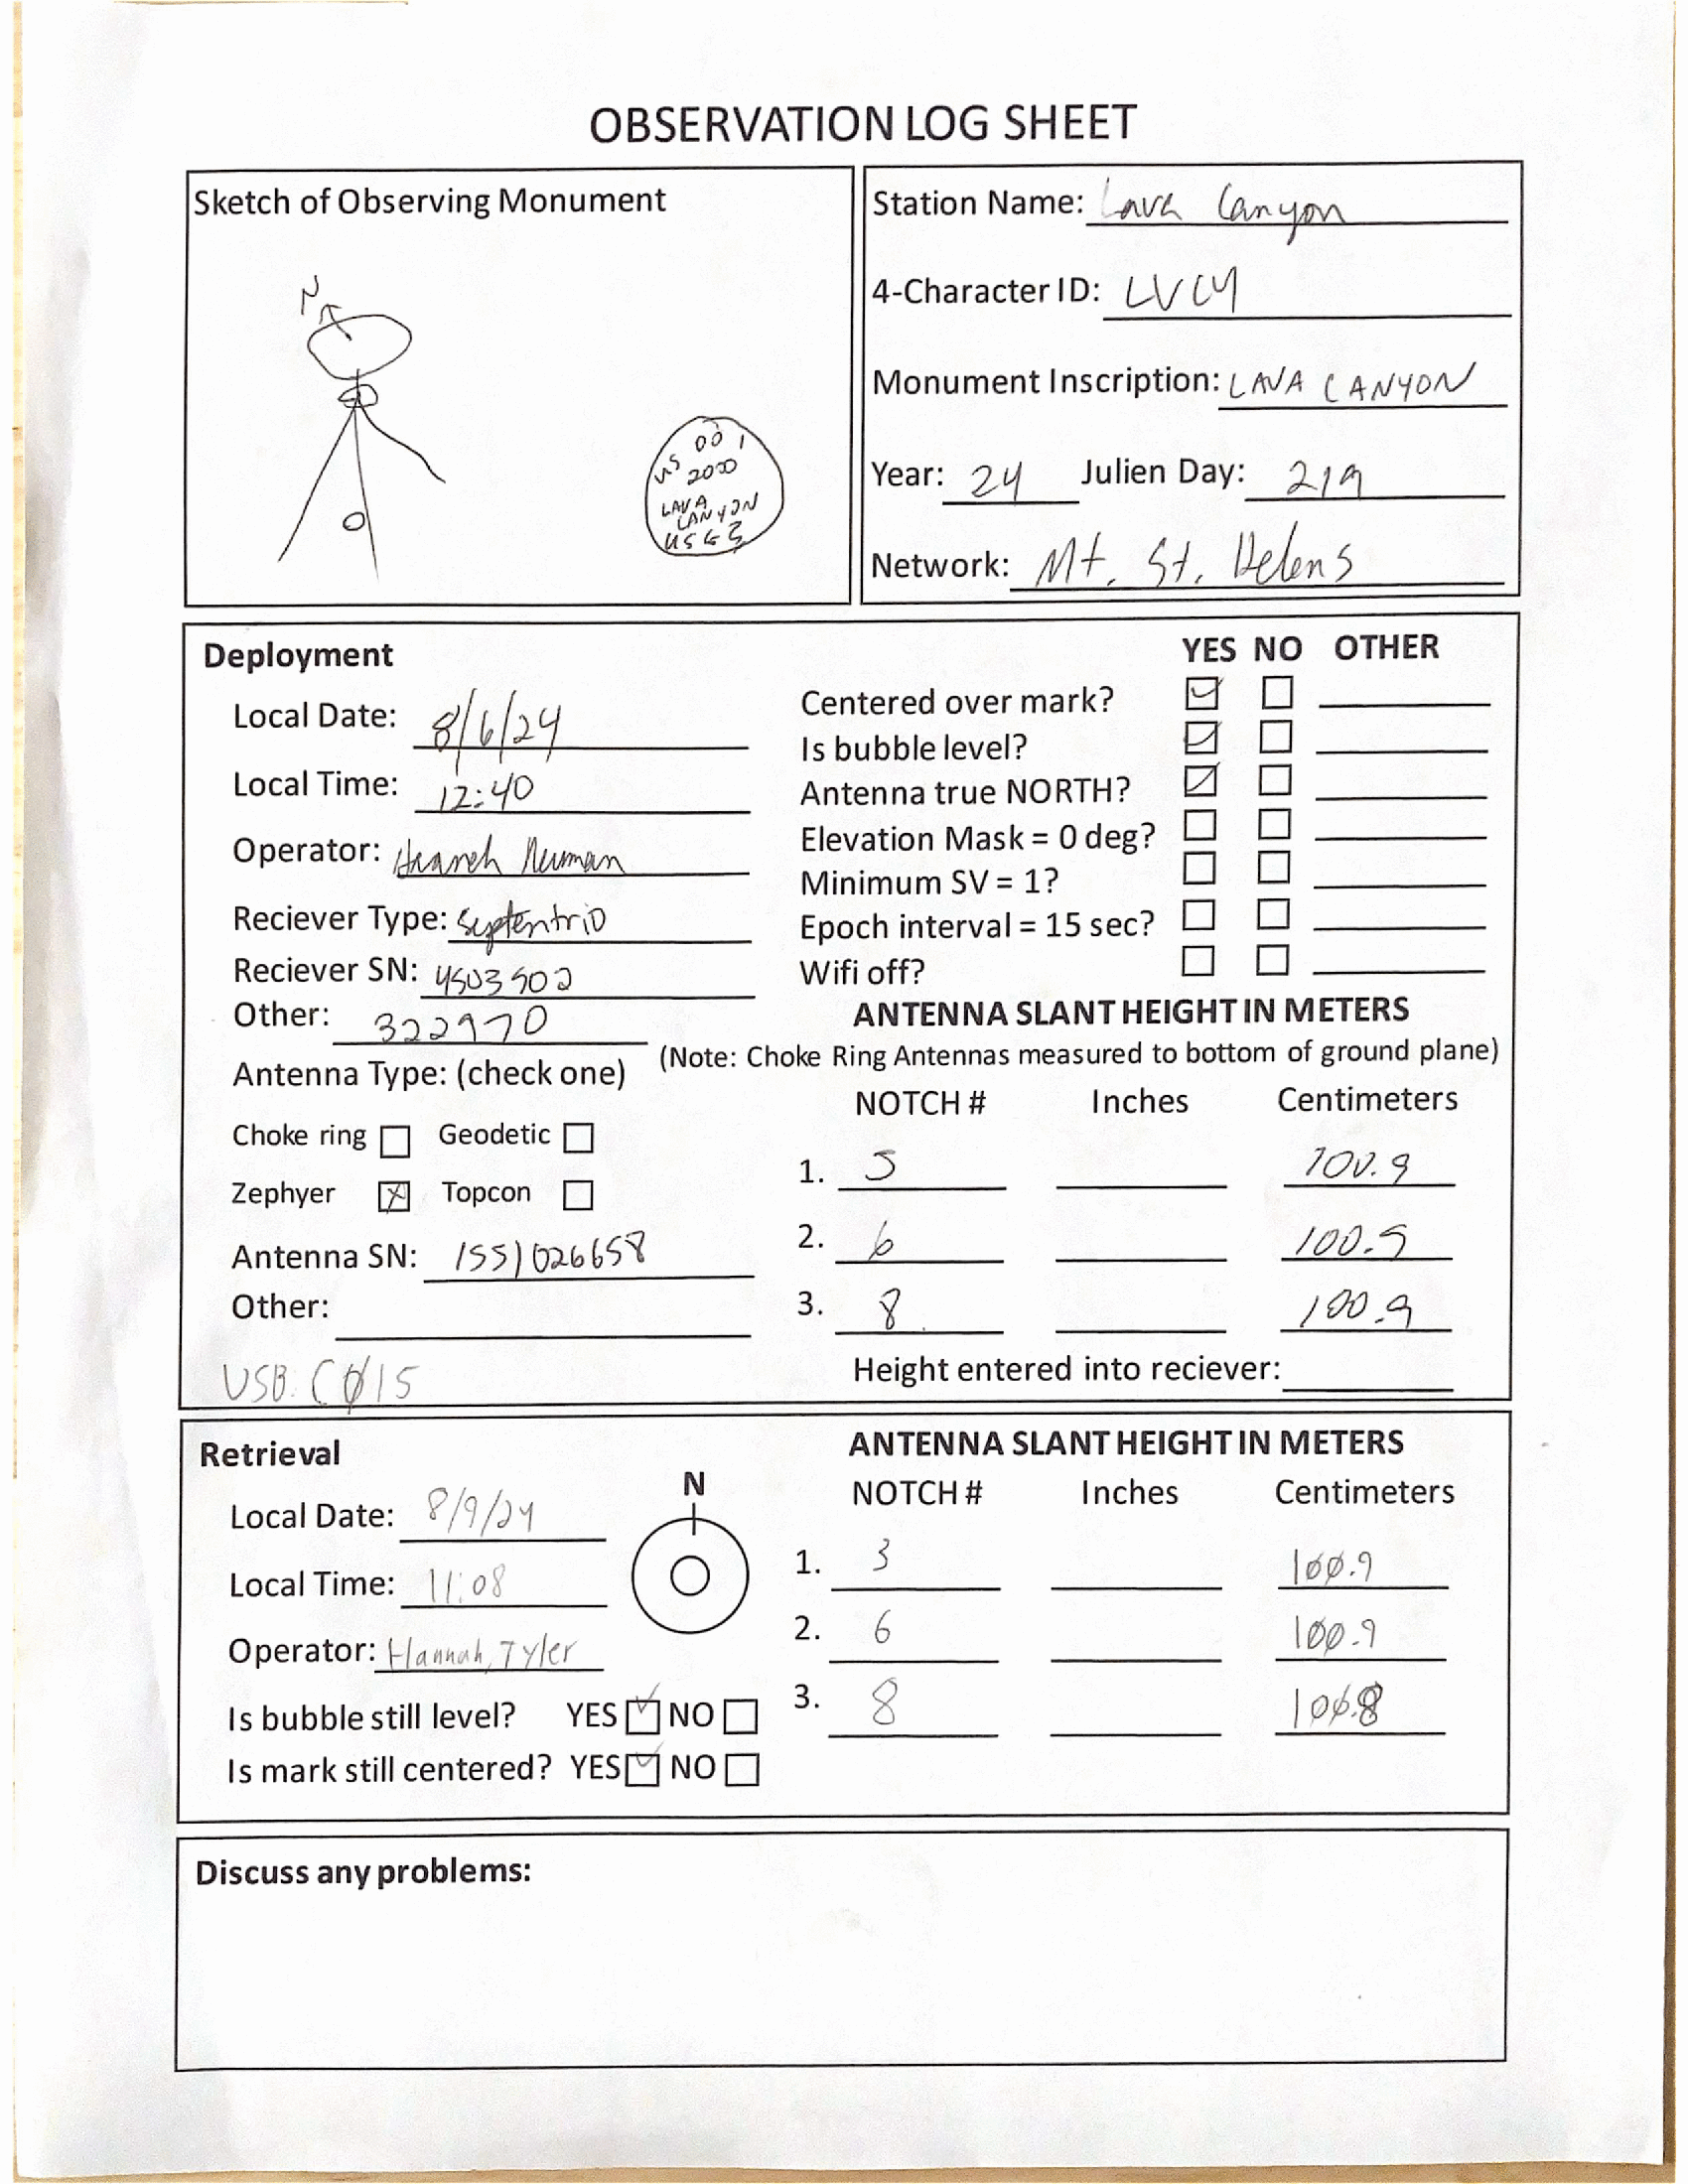 OBSERVATION LOG SHEET
Sketch of Observing Monument
N
001
US 2000
LAVA
CANYON
USGS
Station Name: Lava Canyon
4-Character ID: LVCY
Monument Inscription: LAVA CANYON
Year: 24 Julien Day: 219
Network: Mt. St. Helens
Deployment
Local Date: 8/6/24
Local Time: 12:40
Operator: Hannah Numan
Reciever Type: Septentrio
Reciever SN: 4503502
Other: 322970
Antenna Type: (check one)
Choke ring Geodetic
Zephyer Topcon
Antenna SN: 1551026658
Other:
USB: C015
YES NO OTHER
Centered over mark?
Is bubble level?
Antenna true NORTH?
Elevation Mask = 0 deg?
Minimum SV = 1?
Epoch interval = 15 sec?
Wifi off?
ANTENNA SLANT HEIGHT IN METERS
(Note: Choke Ring Antennas measured to bottom of ground plane)
NOTCH # Inches Centimeters
1. 5 100.9
2. 6 100.9
3. 8 100.9
Height entered into reciever:
Retrieval
Local Date: 8/9/24
Local Time: 11:08
Operator: Hannah, Tyler
Is bubble still level? YES NO
Is mark still centered? YES NO
N
ANTENNA SLANT HEIGHT IN METERS
NOTCH # Inches Centimeters
1. 3 100.9
2. 6 100.9
3. 8 100.8
Discuss any problems: